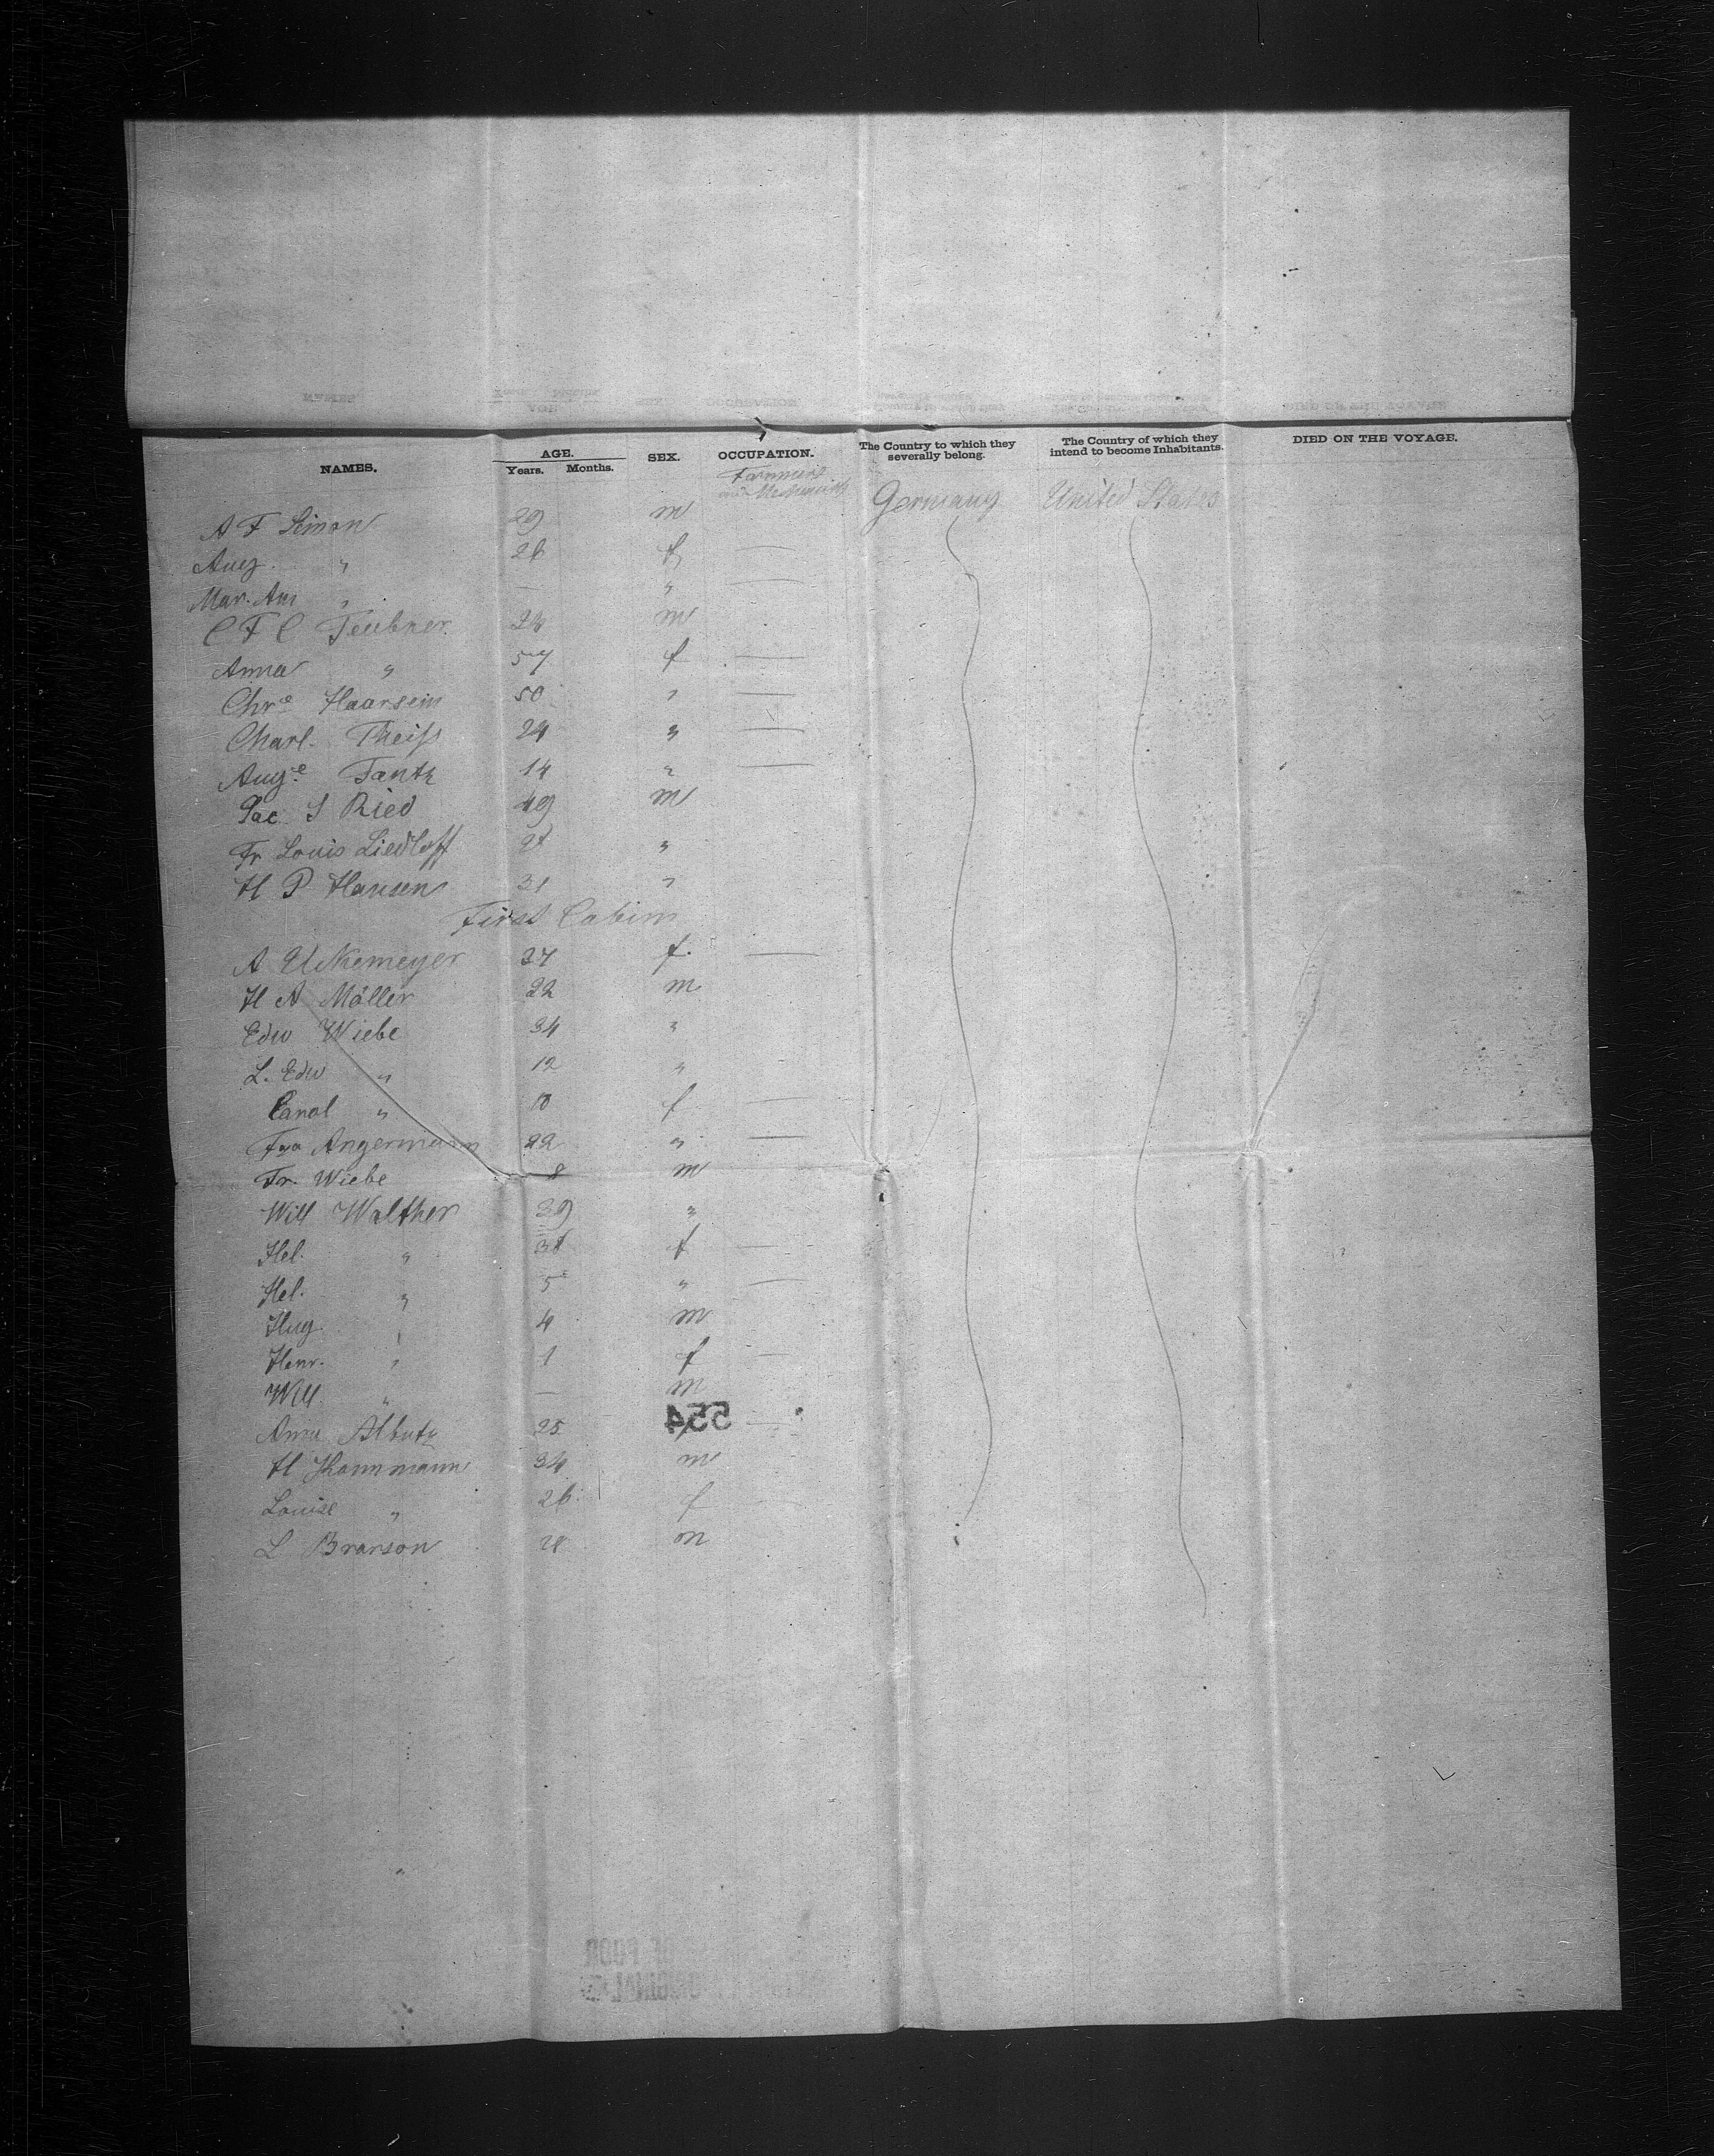 NAMES. AGE. Years. Months. SEX. OCCUPATION. The Country to which they severally belong. The Country of which they intend to become Inhabitants. DIED ON THE VOYAGE.
Farmers and Mechanics Germany United States
A F Simon 29 m
Aug. " 26 f —
Mar. An " — " —
C F C Teubner 24 m
Anna " 57 f —
Chr.e Haarsein 50 " —
Charl. Theiß 24 " —
Aug.e Tantz 14 " —
Jac. S Ried 49 m
Fr Louis Liedloff "
H P Hansen 31 "
First Cabin
A f. —
H A Möller 22 m
Edw Wiebe 34 "
L. Edw " 12 "
Carol " 10 f —
Angermann 22 " —
Fr. Wiebe 8 m
Will Walther 39 "
Hel. " f —
Hel. " 5 " —
Hug. " 4 m
Henr. " 1 f —
Will. " — m
554
Anna 25 —
H 34 m
Louise " 26 f —
L Brarson 28 m